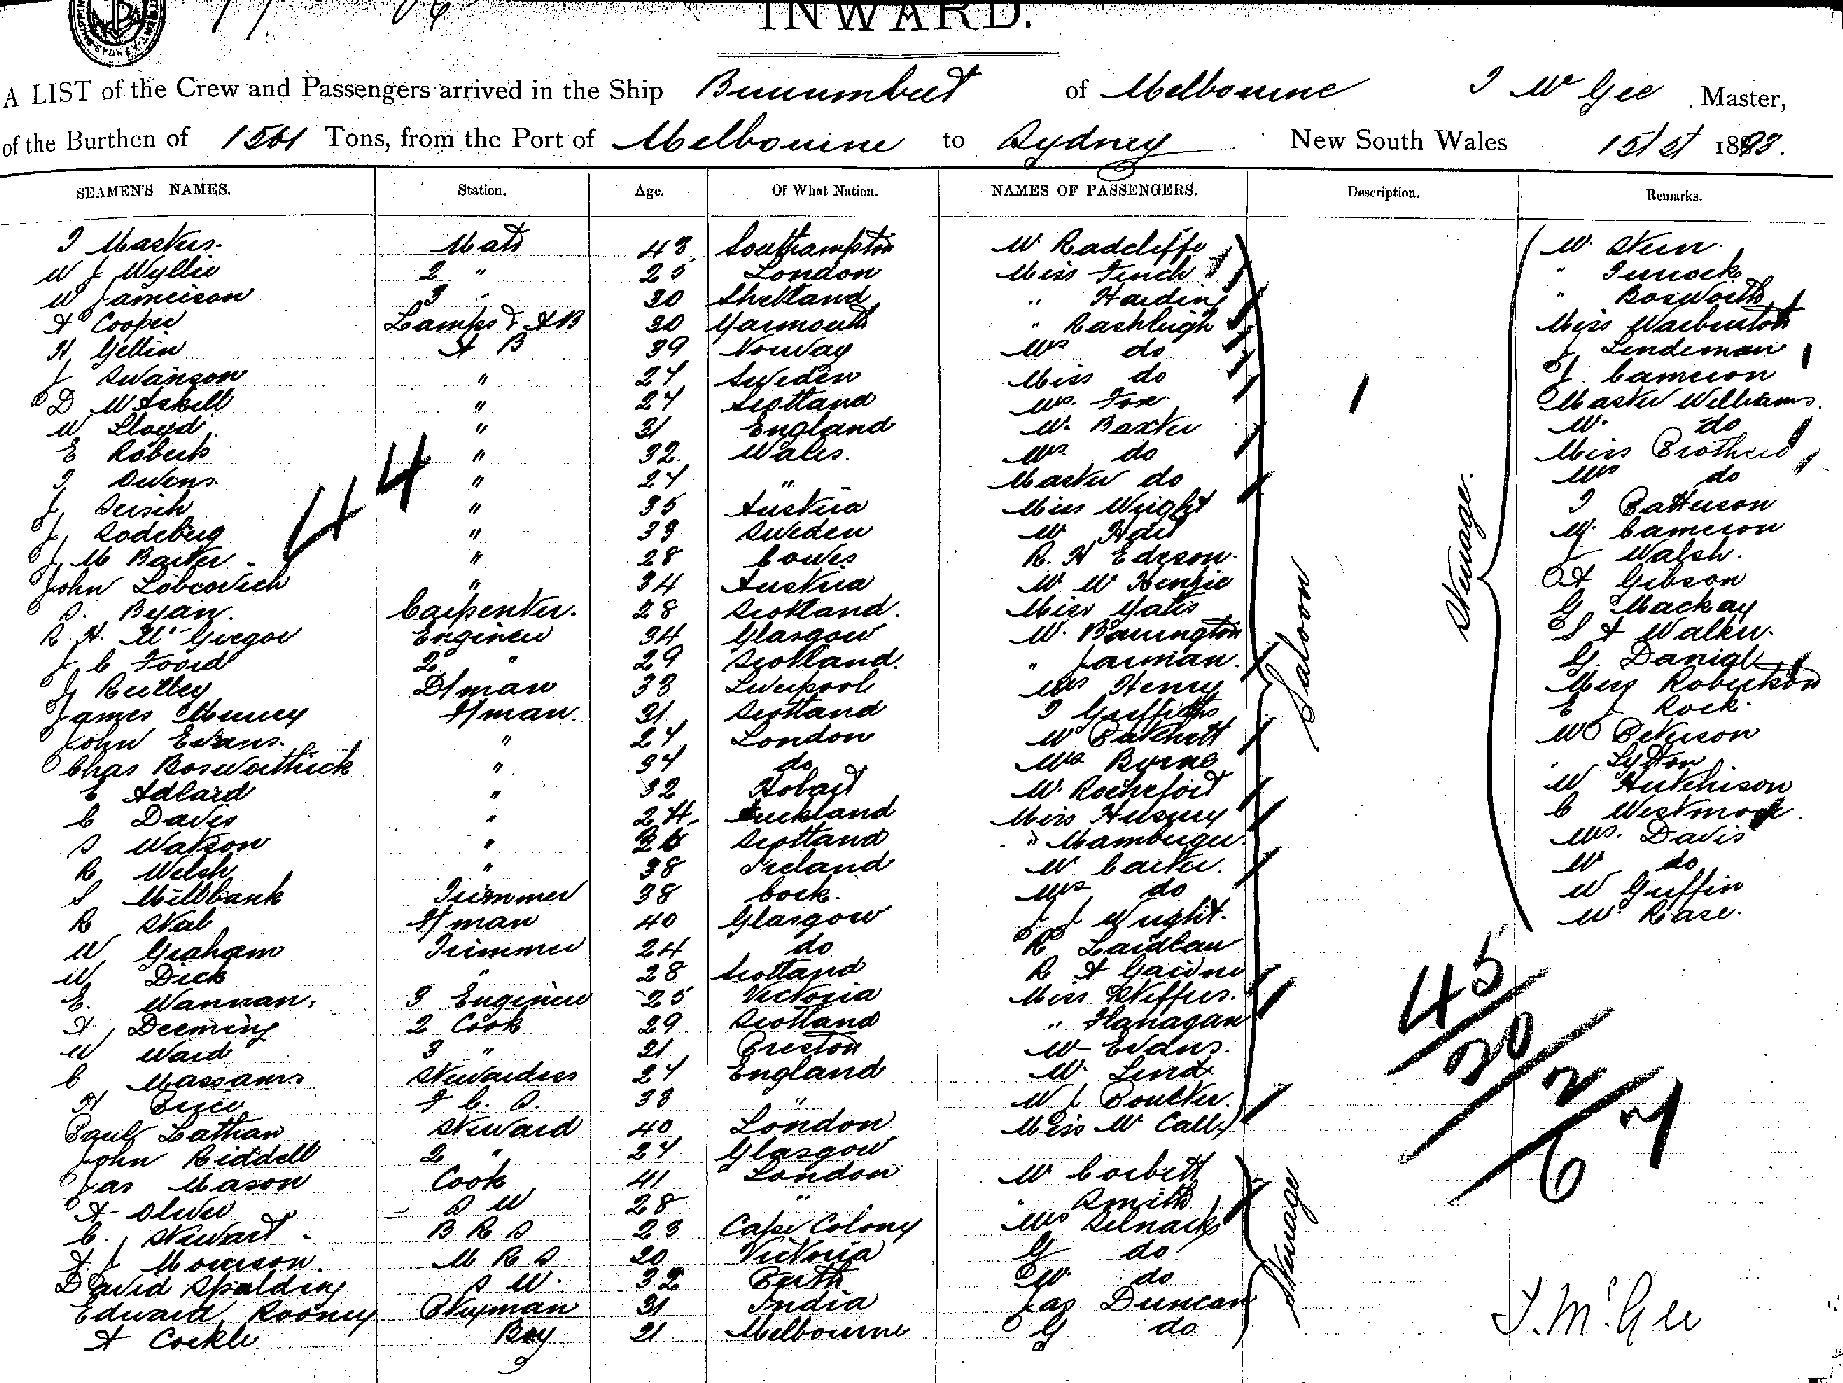 INWARD.
A LIST of the Crew and Passengers arrived in the Ship Burrumbeet of Melbourne T McGee Master,
of the Burthen of Tons, from the Port of Melbourne to Sydney New South Wales 1893.
SEAMEN'S NAMES. Station. Age. Of What Nation. NAMES OF PASSENGERS. Description. Remarks.
T Masters Mate 43 Southampton Mr Radcliffe Mr Stern
W J Wyllie 2 " 25 London Miss Finch "
W Jameison 3 " 30 Shetland " Harding " Bosworth
A Cooper Lamps & AB 20 Yarmouth " Rashleigh Miss Warburton
H Gellin A B 39 Norway Mrs do J Lindeman
J Swanson " 24 Sweden Miss do J Cameron
D McAskill " 24 Scotland Mrs Fox Master Williams
W Lloyd " 31 England Mr Baxter Mr do
E Roberts " 32 Wales Mrs do Miss Brothers
T Owens " 24 " Master do Mrs do
J " 35 Austria Miss Wright T Patterson
J Sodeberg " 33 Sweden Mr M Cameron
J M Barter " 28 Cowes R H Edeson J Walsh
John Lobcovich " 34 Austria Mr McKenzie A Gibson
S. Ryan Carpenter. 28 Scotland. Miss Yates G Mackay
R H McGregor Engineer 34 Glasgow Mr Barrington S A Walker
J C Foord 2 " 29 Scotland. " Jarman. G Daniel
J Reilley D/man 33 Liverpool Mrs Henry Miss Robertson
James Murray F/man 31 Scotland T Griffiths E J Rock
John Evans " 24 London Mr Patchett W Peterson
Chas Bosworthick " 34 do Mrs Byrne " Lytton
E Adlard " 32 Hobart Mr Rochefort W Hutchison
C Davis " 24 Auckland Miss Hussey C Westmore
S Watson " 26 Scotland " Hamburger Mrs Davis
R Welsh " 38 Ireland Mr Carter Mr do
S Millbank Trimmer 38 Cork Mrs do W Griffin
R F/man 40 Glasgow J J Wright W Rase.
W Graham Trimmer 24 do R Laidlaw
W Dick " 28 Scotland R A
E. Wannan. 3 Engineer 25 Victoria Miss
A Deeming 2 Cook 29 Scotland " Flanagan
W Ward 3 " 21 Preston Mr Evans.
C Massams Stewardess 24 England Mr Lind
H Price F. C. S. 33 " W J Poulter.
Paul Lathan Steward 40 London Miss McCall
John Riddell 2 " 24 Glasgow
Jas Mason Cook 41 London Mr Corbett
A Oliver S W 28 " " Smith
C. Stewart B R S 23 Cape Colony Mrs Selnack
A J Morrison. M R S 20 Victoria G do
David Spalding S W. 32 Perth W do
Edward Rooney P/man 31 India Jas Duncan
A Cockle Boy 21 Melbourne G do
Saloon
Steerage
Steerage
44
45
20
2
67
T. McGee